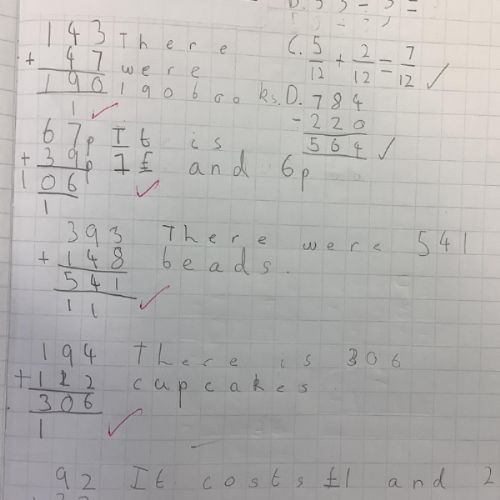 143 There
+ 47 were
190 190 books.
1
67p It is
+39p 1£ and 6p
106
1
393 There were 541
+148 beads.
541
11
194 There is 306
+112 cupcakes
306
1
92 It costs £1 and 2
C. 5/12 + 2/12 = 7/12
D. 784
- 220
564